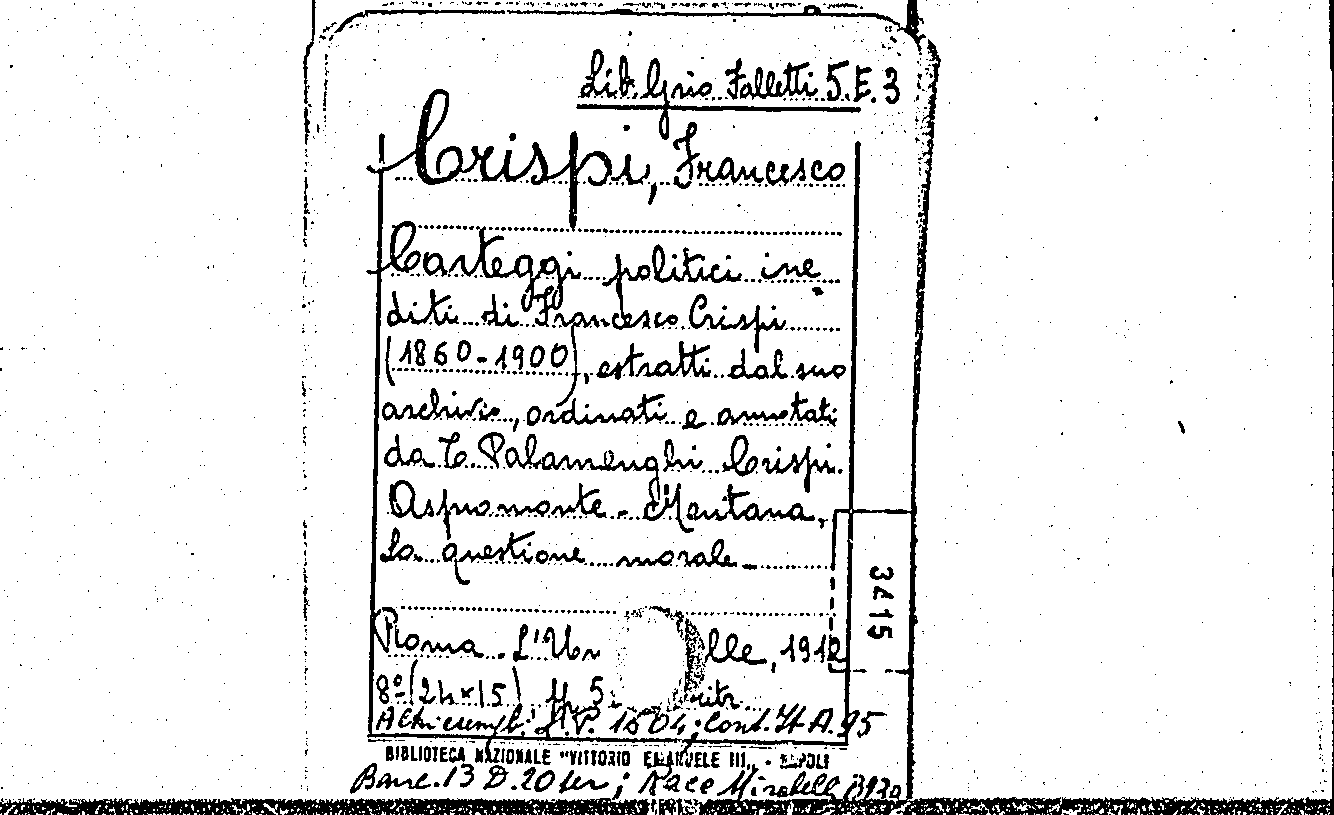 Lib. Grio Falletti 5.E.3
Crispi, Francesco
Carteggi politici ine
diti di Francesco Crispi
(1860-1900), estratti dal suo
archivio, ordinati e annotati
da T. Palamenghi Crispi.
Aspromonte - Mentana,
la questione morale -
3415
Roma. L'Un lle, 1912
8º (24x15) 5 ritr.
S.P. 1604; Cont. It A. 95
BIBLIOTECA NAZIONALE "VITTORIO EMANUELE III" - NAPOLI
Banc. 13 D. 20 ter; Race Mirabelli B